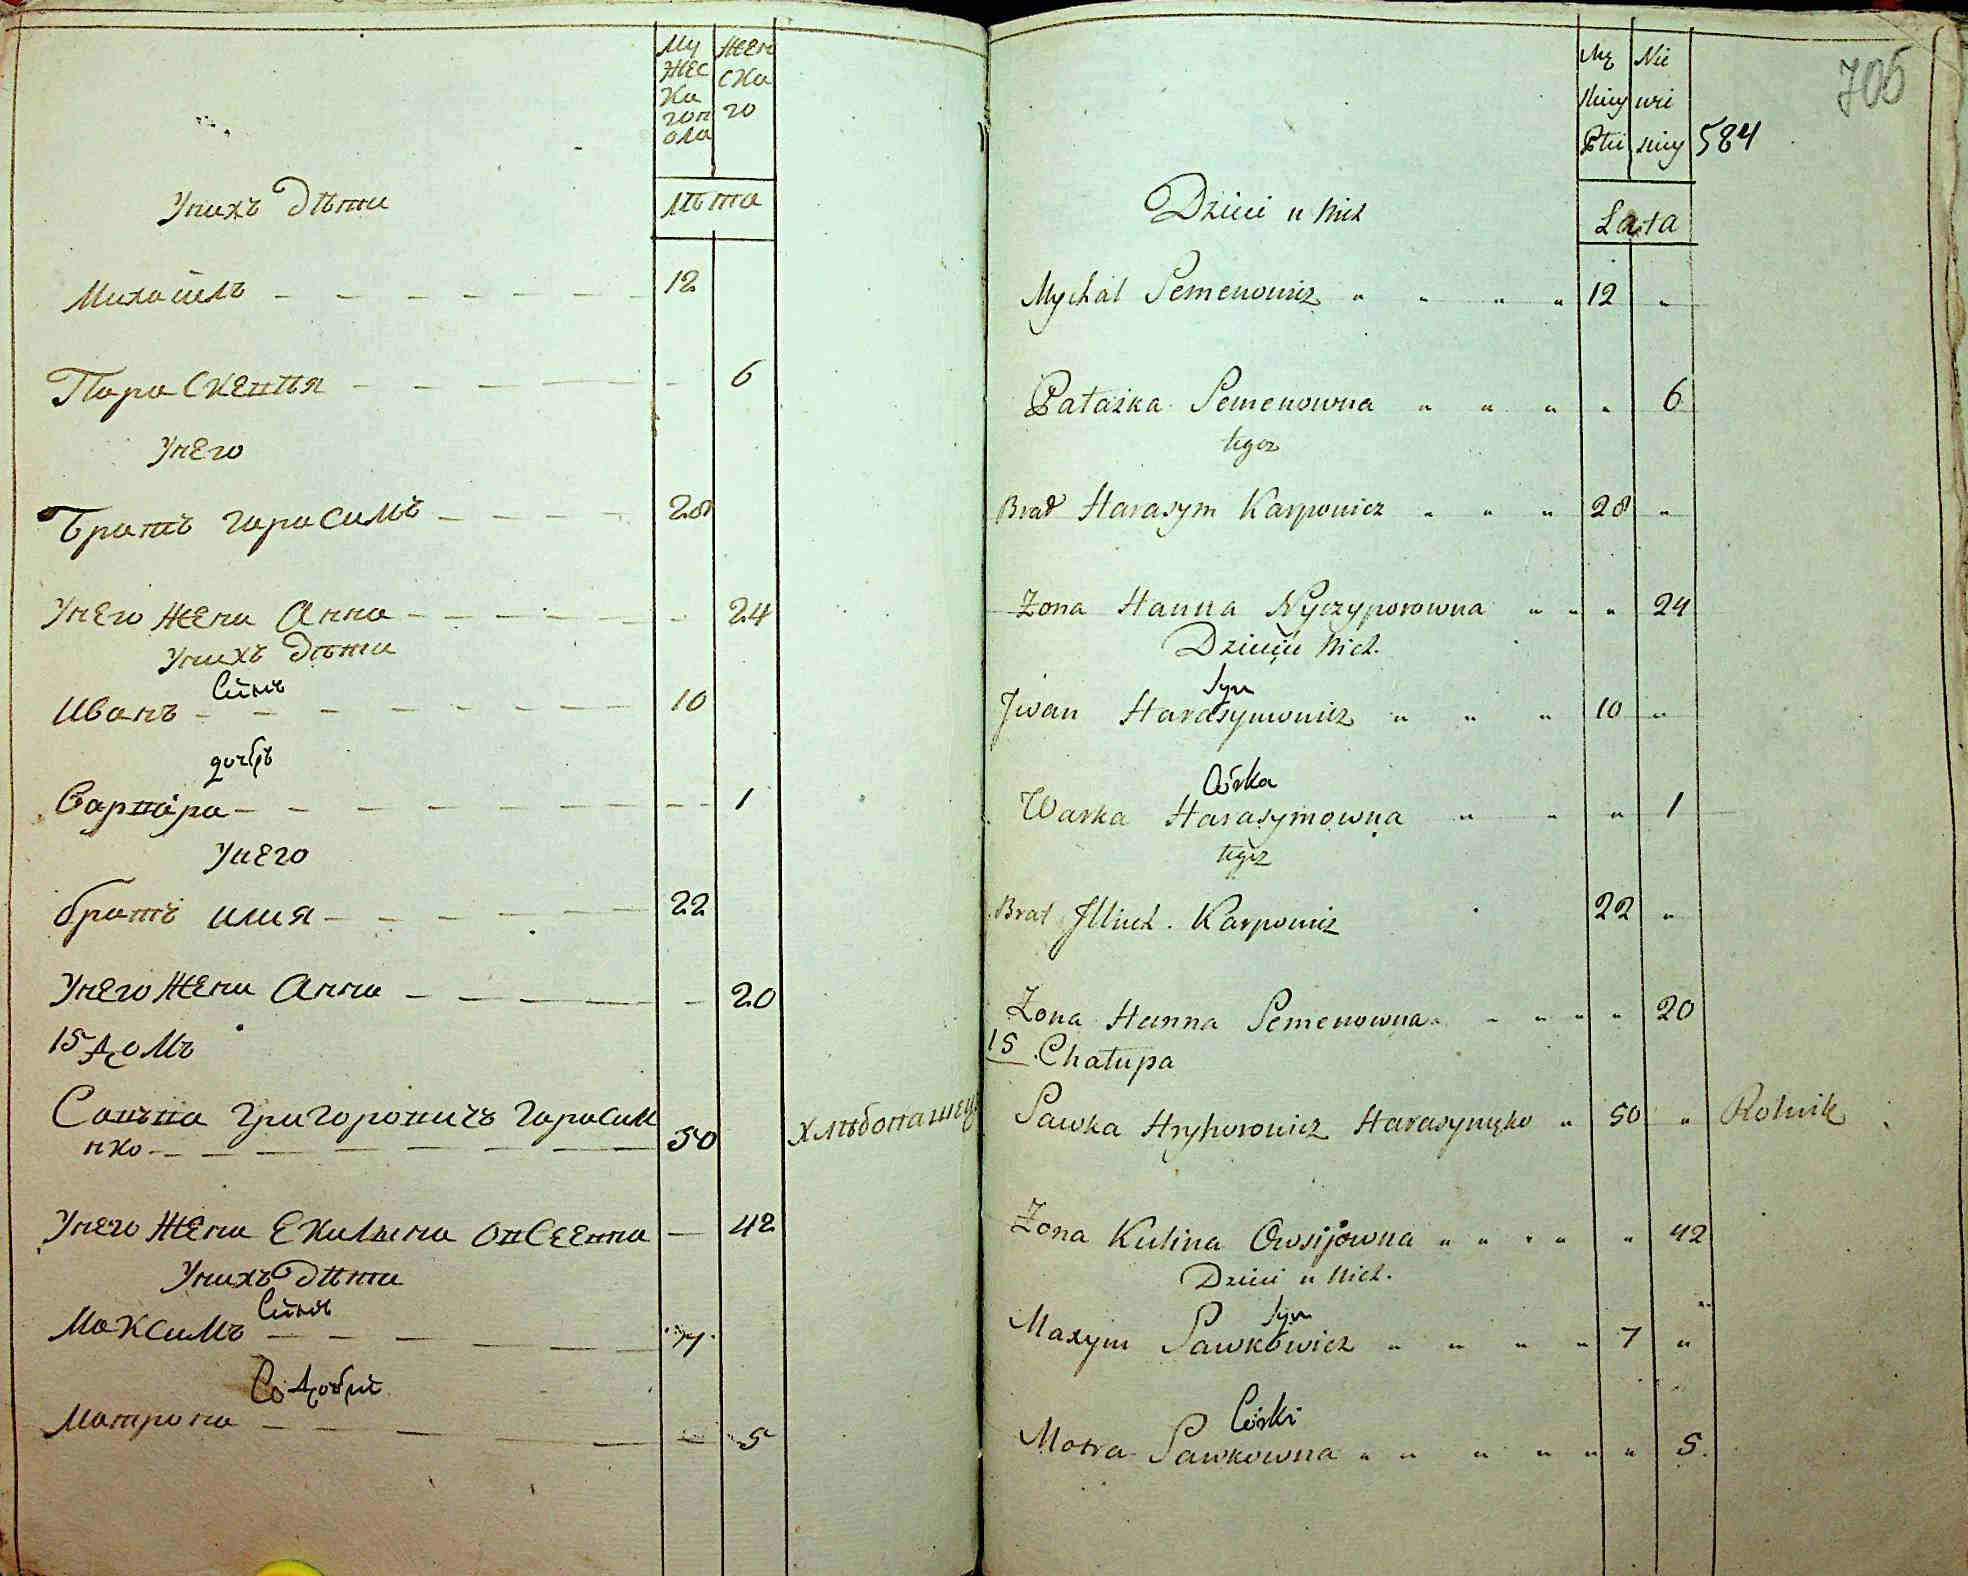 Му
жес
ка
гоп
ола
жен
ска
го
лѣта
Унихъ дѣти
Михаилъ 12
Параскевья 6
Унего
братъ гарасимъ 28
Унего жена Анна 24
Унихъ дѣти
Сынъ
Иванъ 10
дочерь
Варвара 1
Унего
братъ илия 22
Унего жена Анна 20
15 домъ
Савъка григоровичъ гарасим
нко 50 хлѣбопашец
Унего жена Екилина овсеевна 42
Унихъ дѣти
Сынъ
Максимъ 7
Матрона 5
705
584
Lata
Dzieci u Nich
Mychał Semenowicz 12
Pałażka Semenowna 6
tegoż
Brat Harasym Karpowicz 28
Żona Hanna Nyczyporowna 24
Dzieci u Nich.
Syn
Jwan Harasymowicz 10
Córka
Warka Harasymowna 1
tegoż
Brat Jlliuch. Karpowicz 22
Żona Hanna Semenowna 20
15 Chałupa
Sawka Hryhorowicz Harasymęko 50 Rolnik
Żona Kulina Owsijowna 42
Dzieci u Nich.
Syn
Maxym Sawkowicz 7
Córki
Motra Sawkowna 5